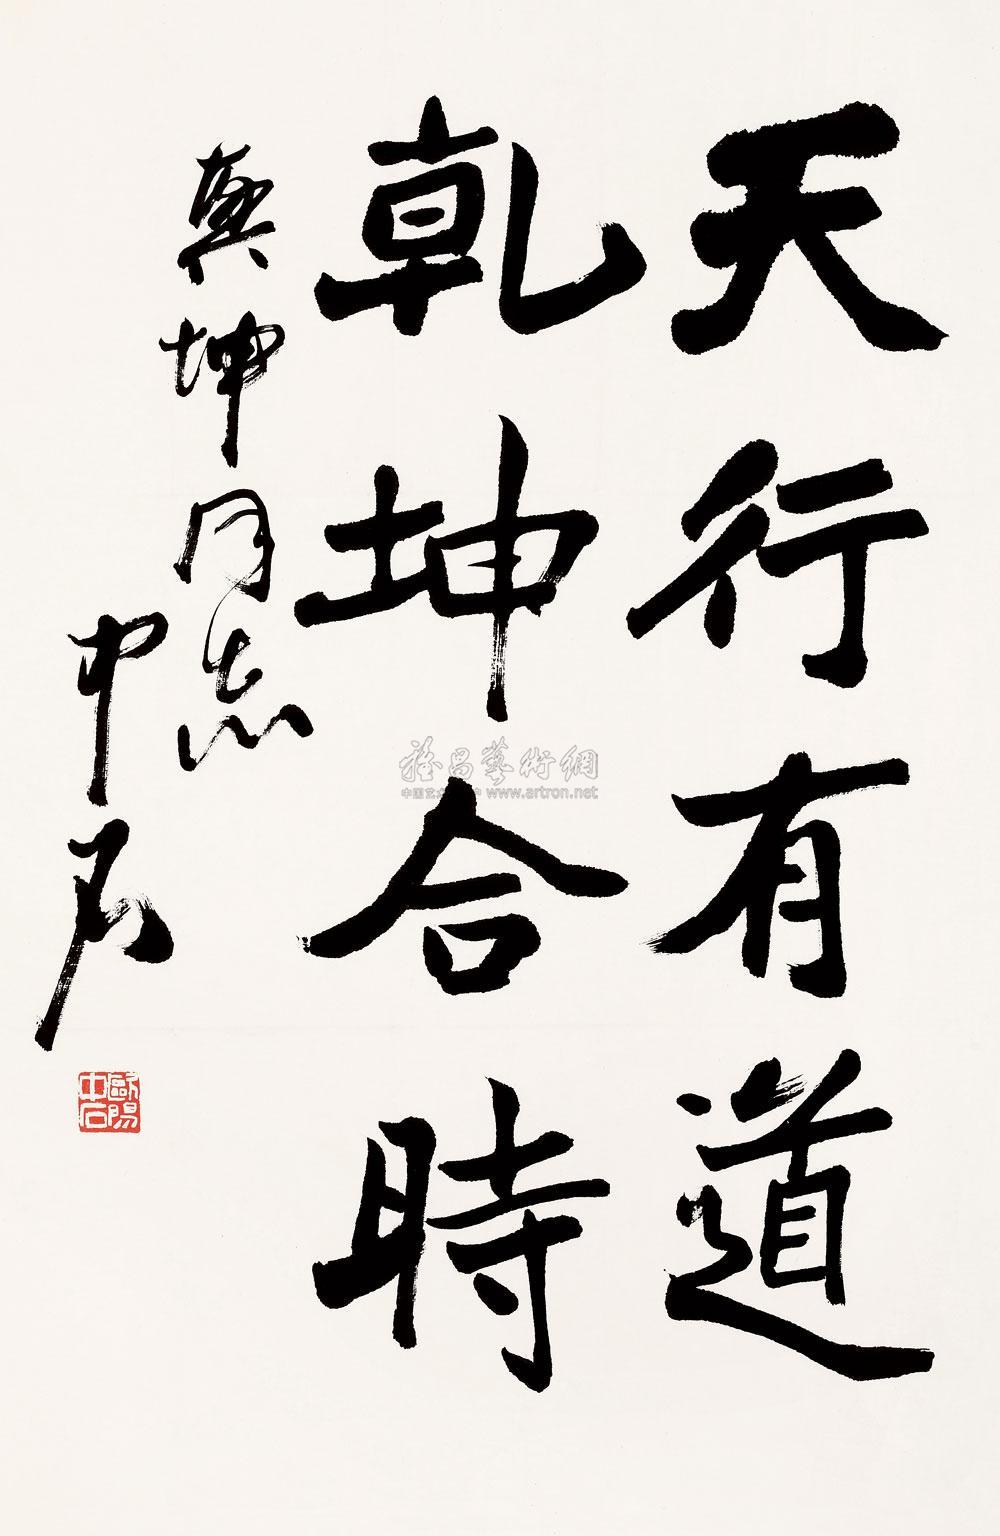 天行有道
乾坤合時
乾坤同志
中石
歐陽中石
雅昌藝術網
www.artron.net